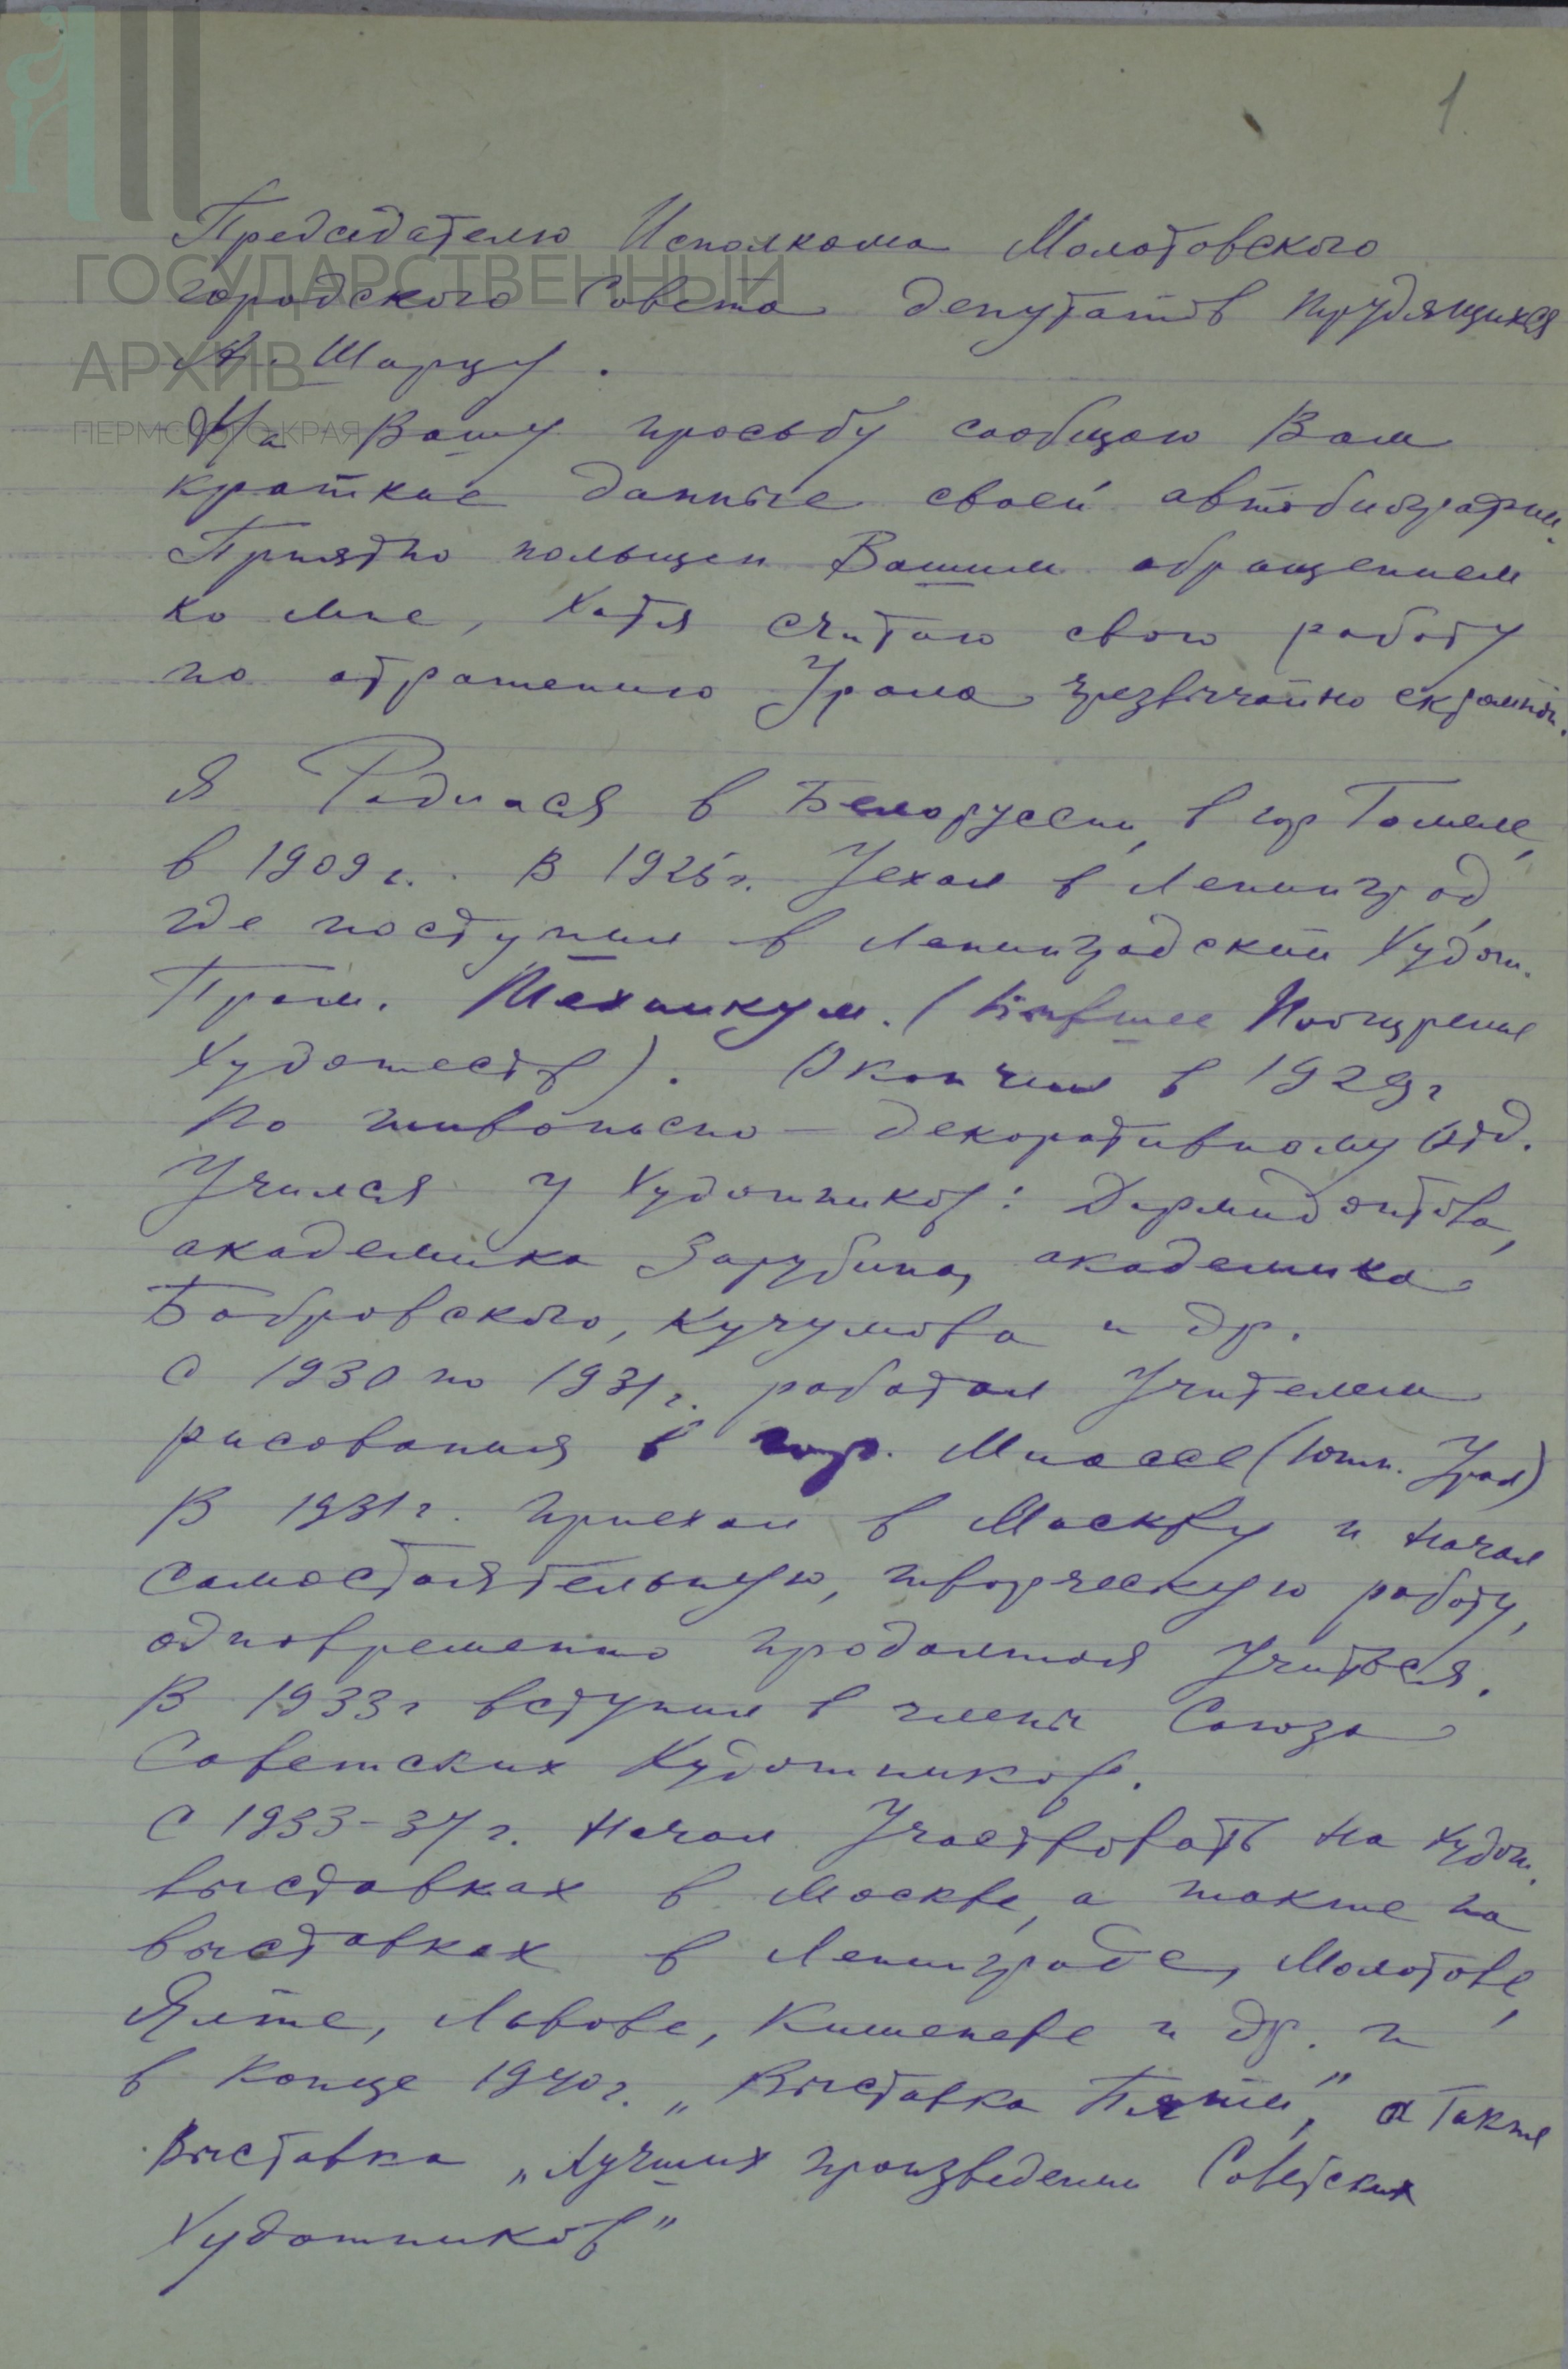 1.
Председателю Исполкома Молотовского
городского Совета депутатов трудящихся
А. Шарцу.
ГОСУДАРСТВЕННЫЙ
АРХИВ
ПЕРМСКОГО КРАЯ
На Вашу просьбу сообщаю Вам
краткие данные своей автобиографии.
Приятно польщен Вашим обращением
ко мне, хотя считаю свою работу
по отражению Урала чрезвычайно скромной.
Я Родился в Белоруссии, в гор Гомеле,
в 1909 г. В 1925 г. Уехал в Ленинград,
где поступил в Ленинградский Худож.
Пром. Техникум. (Бывшее Поощрение
Художеств). Окончил в 1929 г
По живописно-декоративному Отд.
Учился у Художников: Дормидонтова,
академика Зарубина, академика
Бобровского, Кучумова и др.
С 1930 по 1931 г. работал Учителем
рисования в гор. Миассе (Южн. Урал)
В 1931 г. приехал в Москву и начал
самостоятельную, творческую работу,
одновременно продолжая Учиться.
В 1933 г вступил в члены Союза
Советских Художников.
С 1933-34 г. Начал Участвовать на худож.
выставках в Москве, а также на
выставках в Ленинграде, Молотове,
Ялте, Львове, Кишеневе и др. и
в Конце 1940 г. „Выставка Пяти", а также
Выставка „Лучших произведении Советских
Художников"